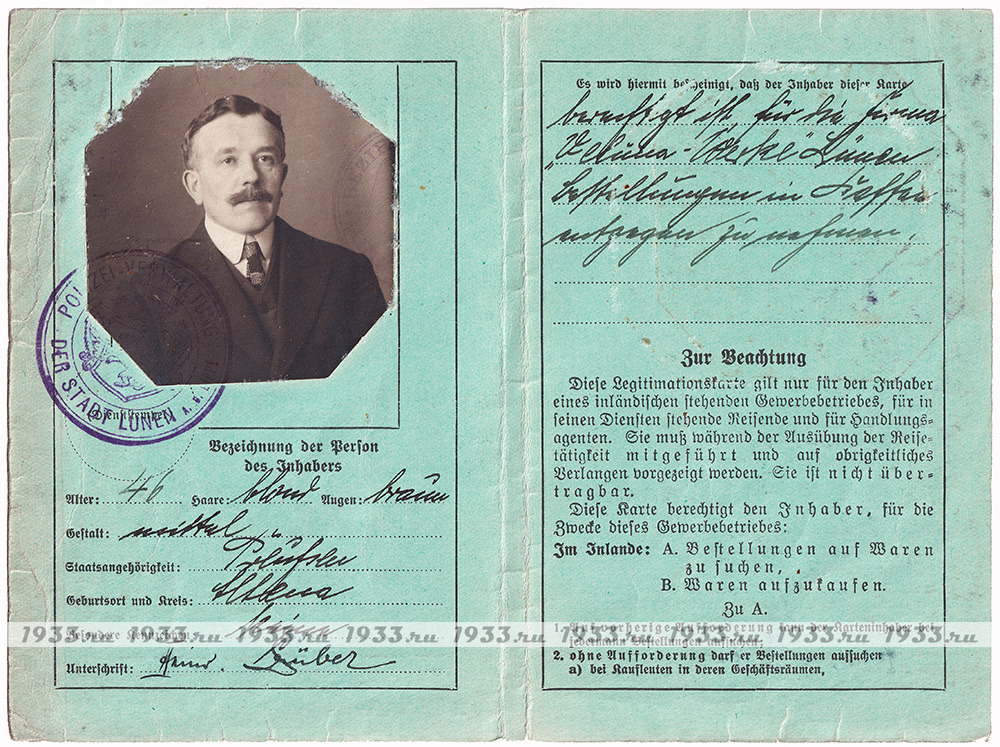 POLIZEI-VERWALTUNG
DER STADT LÜNEN A. D. L.
(Dienststempel)
Bezeichnung der Person
des Inhabers
Alter: 46 Haare: blond Augen: braun
Gestalt: mittel
Staatsangehörigkeit: Preußen
Geburtsort und Kreis: Altena
Besondere Kennzeichen:
Unterschrift: Heinr.
Es wird hiermit bescheinigt, daß der Inhaber dieser Karte
berechtigt ist, für die Firma
Werke" Lünen
Bestellungen in
entgegen zu nehmen.
Zur Beachtung
Diese Legitimationskarte gilt nur für den Inhaber
eines inländischen stehenden Gewerbebetriebes, für in
seinen Diensten stehende Reisende und für Handlungs-
agenten. Sie muß während der Ausübung der Reise-
tätigkeit mitgeführt und auf obrigkeitliches
Verlangen vorgezeigt werden. Sie ist nicht über-
tragbar.
Diese Karte berechtigt den Inhaber, für die
Zwecke dieses Gewerbebetriebes:
Im Inlande: A. Bestellungen auf Waren
zu suchen,
B. Waren aufzukaufen.
Zu A.
1. Auf vorherige Aufforderung kann der Karteninhaber bei
jedermann Bestellungen aufsuchen.
2. ohne Aufforderung darf er Bestellungen aufsuchen
a) bei Kaufleuten in deren Geschäftsräumen,
1933.ru 1933.ru 1933.ru 1933.ru 1933.ru 1933.ru 1933.ru 1933.ru 1933.ru